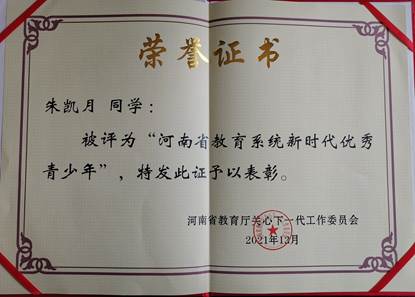 荣誉证书
朱凯月 同学：
被评为“河南省教育系统新时代优秀
青少年”，特发此证予以表彰。
河南省教育厅关心下一代工作委员会
2021年12月